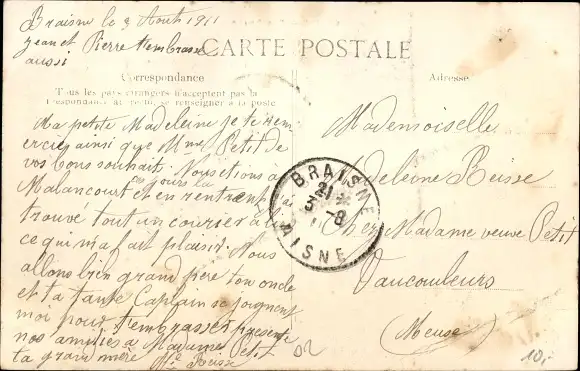 Braisne le 3 Aout 1911
Jean et Pierre t'embrasse
aussi
CARTE POSTALE
Correspondance
Adresse
Tous les pays étrangers n'acceptent pas la
Correspondance au recto, se renseigner à la poste
Ma petite Madeleine je te remer
cie ainsi que Mme Petit de
vos bons souhait. Nous étions a
Malancourt
et en rentrant j'ai
trouvé tout un courier a lire
ce qui m'a fait plaisir. Nous
allons bien grand père ton oncle
et ta tante Caplain se joignent
moi pour t'embrasser presente
nos amitiés a Madame Petit
ta grand mère
Reisse
Mademoiselle
Madeleine Reisse
Chez Madame veuve Petit
Vaucouleurs
(Meuse)
BRAISNE
21
3 -8
11
AISNE
10,-